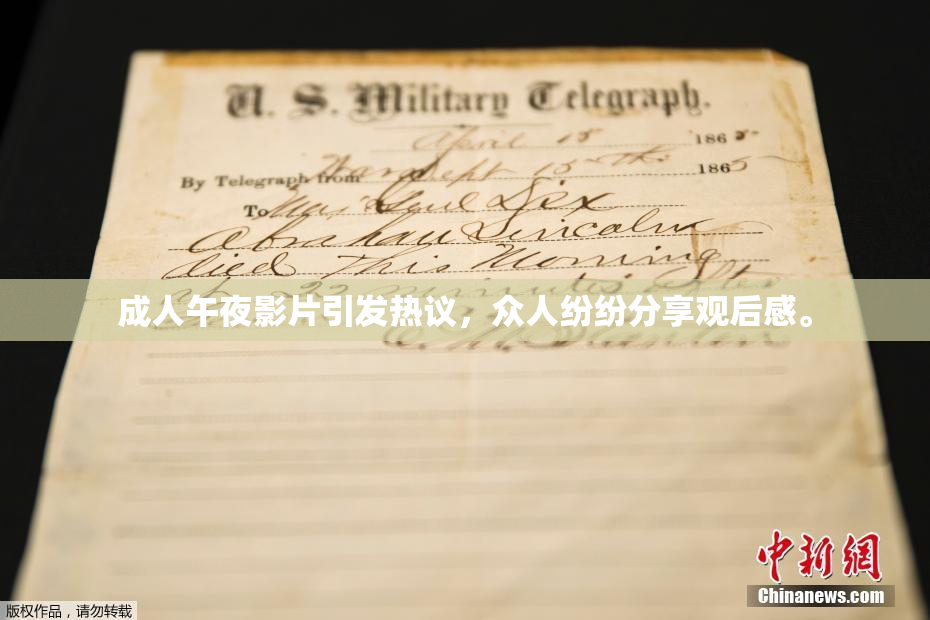 U. S. Military Telegraph.
April 15 1865
By Telegraph from War Dept 15th 1865
To Maj Genl Dix
Abraham Lincoln
died This Morning
at 22 minutes after
成人午夜影片引发热议，众人纷纷分享观后感。
E. M. Stanton
中新网
Chinanews.com
版权作品，请勿转载